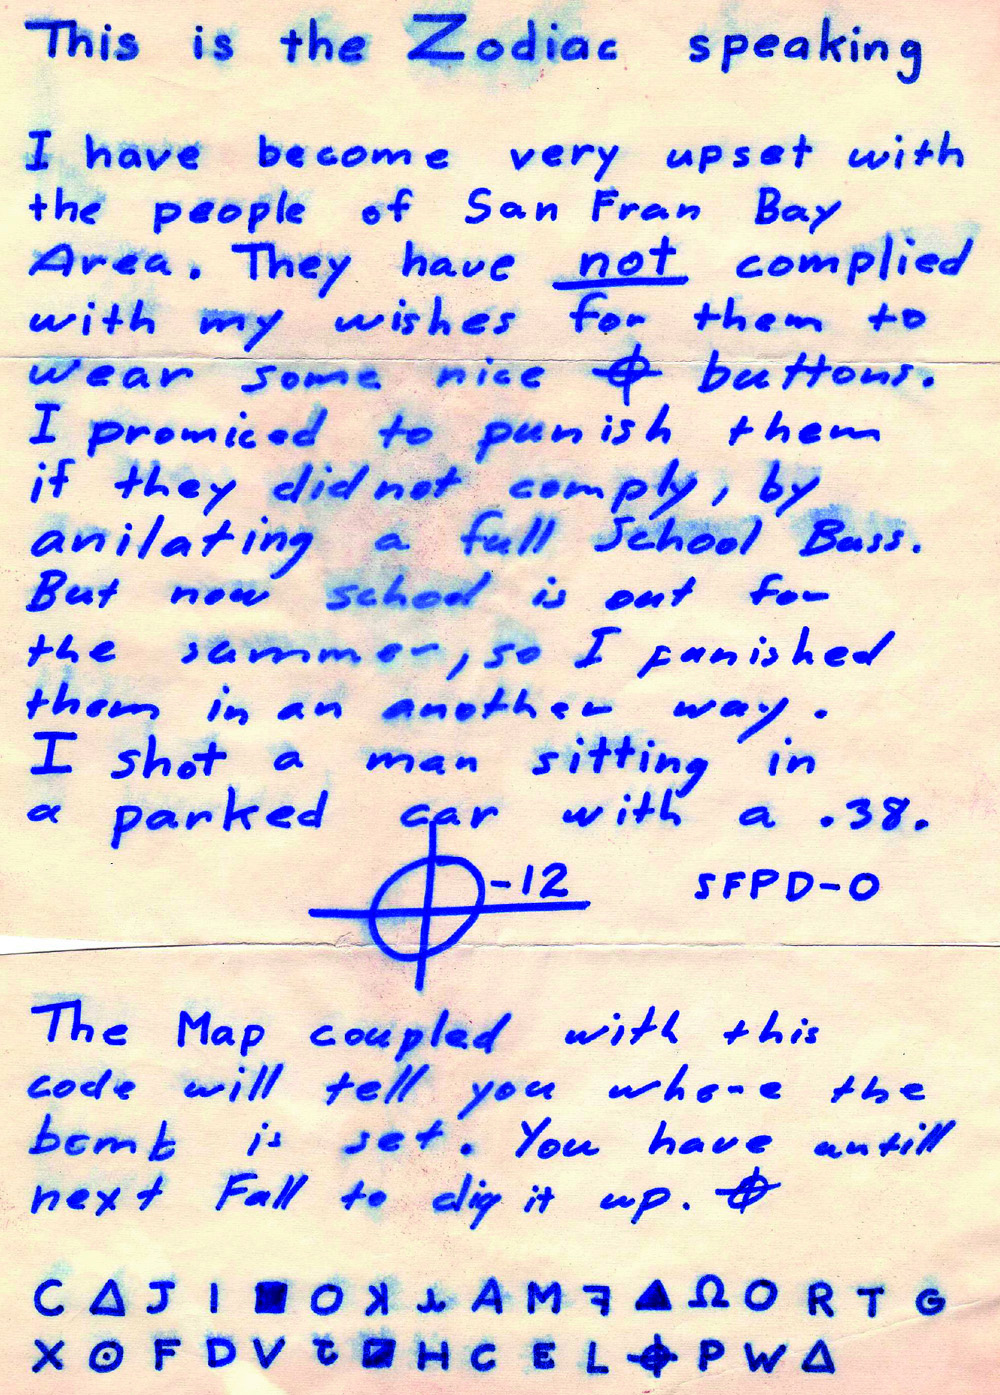 This is the Zodiac speaking
I have become very upset with
the people of San Fran Bay
Area. They have not complied
with my wishes for them to
wear some nice ⌖ buttons.
I promiced to punish them
if they did not comply, by
anilating a full School Buss.
But now school is out for
the summer, so I punished
them in an another way.
I shot a man sitting in
a parked car with a .38.
⌖-12 SFPD-0
The Map coupled with this
code will tell you where the
bomb is set. You have untill
next Fall to dig it up. ⌖
C Δ J I ■ O ꓘ ⅄ A M ꟻ ▲ Ω O R T G
X ⊙ F D V Ꞇ ◪ H C E L ⌖ P W Δ